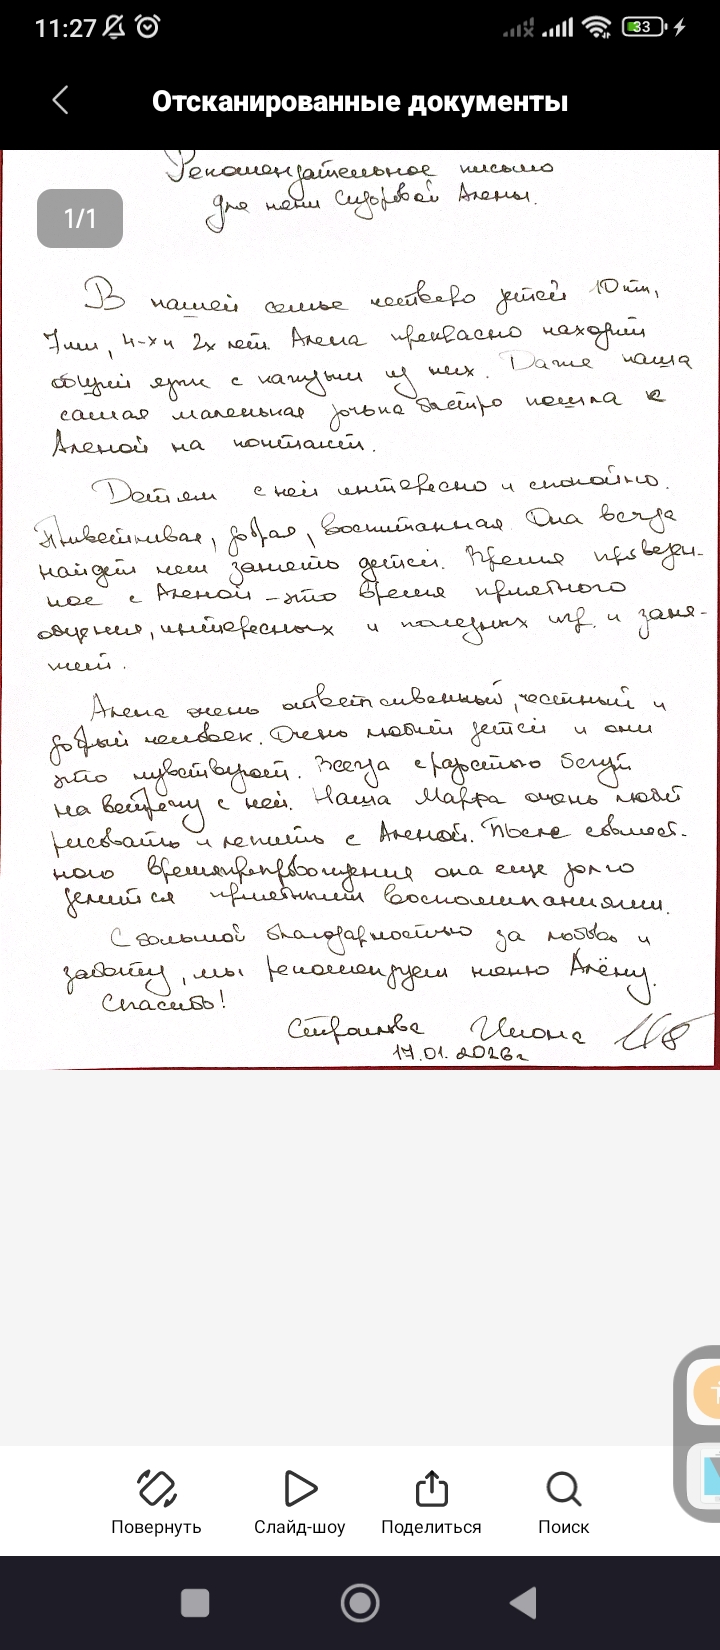 11:27
33
Отсканированные документы
1/1
Рекомендательное письмо
для няни Сидоровой Алены.
В нашей семье четверо детей 10ти,
7ми, 4-х и 2х лет. Алена прекрасно находит
общий язык с каждым из них. Даже наша
самая маленькая дочька быстро пошла с
Аленой на контакт.
Детям с ней интересно и спокойно.
Приветливая, добрая, воспитанная. Она всегда
найдет чем занять детей. Время проведен-
ное с Аленой - это время приятного
общения, интересных и полезных игр и заня-
тий.
Алена очень ответственный, честный и
добрый человек. Очень любит детей и они
это чувствуют. Всегда с радостью бегут
на встречу с ней. Наша Марфа очень любит
рисовать и лепить с Аленой. После совмест-
ного времяпрепровождения она еще долго
делится приятными воспоминаниями.
С большой благодарностью за любовь и
заботу, мы рекомендуем няню Алёну.
Спасибо!
Илона
17.01.2026г
Повернуть
Слайд-шоу
Поделиться
Поиск